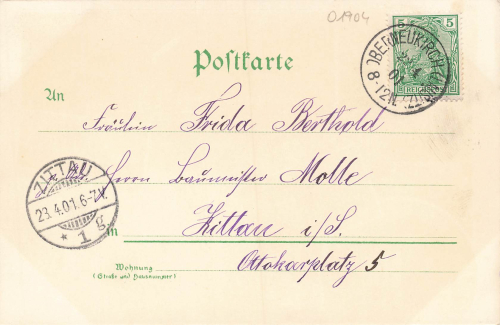 01904
5 5
REICHSPOST
OBERNEUKIRCH (LAUSITZ)
4
01
8-12V.
Postkarte
An
Fräulein Frida Berthold
Herrn Baumeister Molle
ZITTAU
23.4.01.6-7V.
* 1 g
in Zittau i/S.
Wohnung
(Straße und Hausnummer)
Ottokarplatz 5